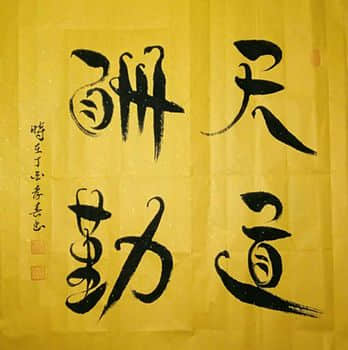 天道
酬勤
時在丁酉